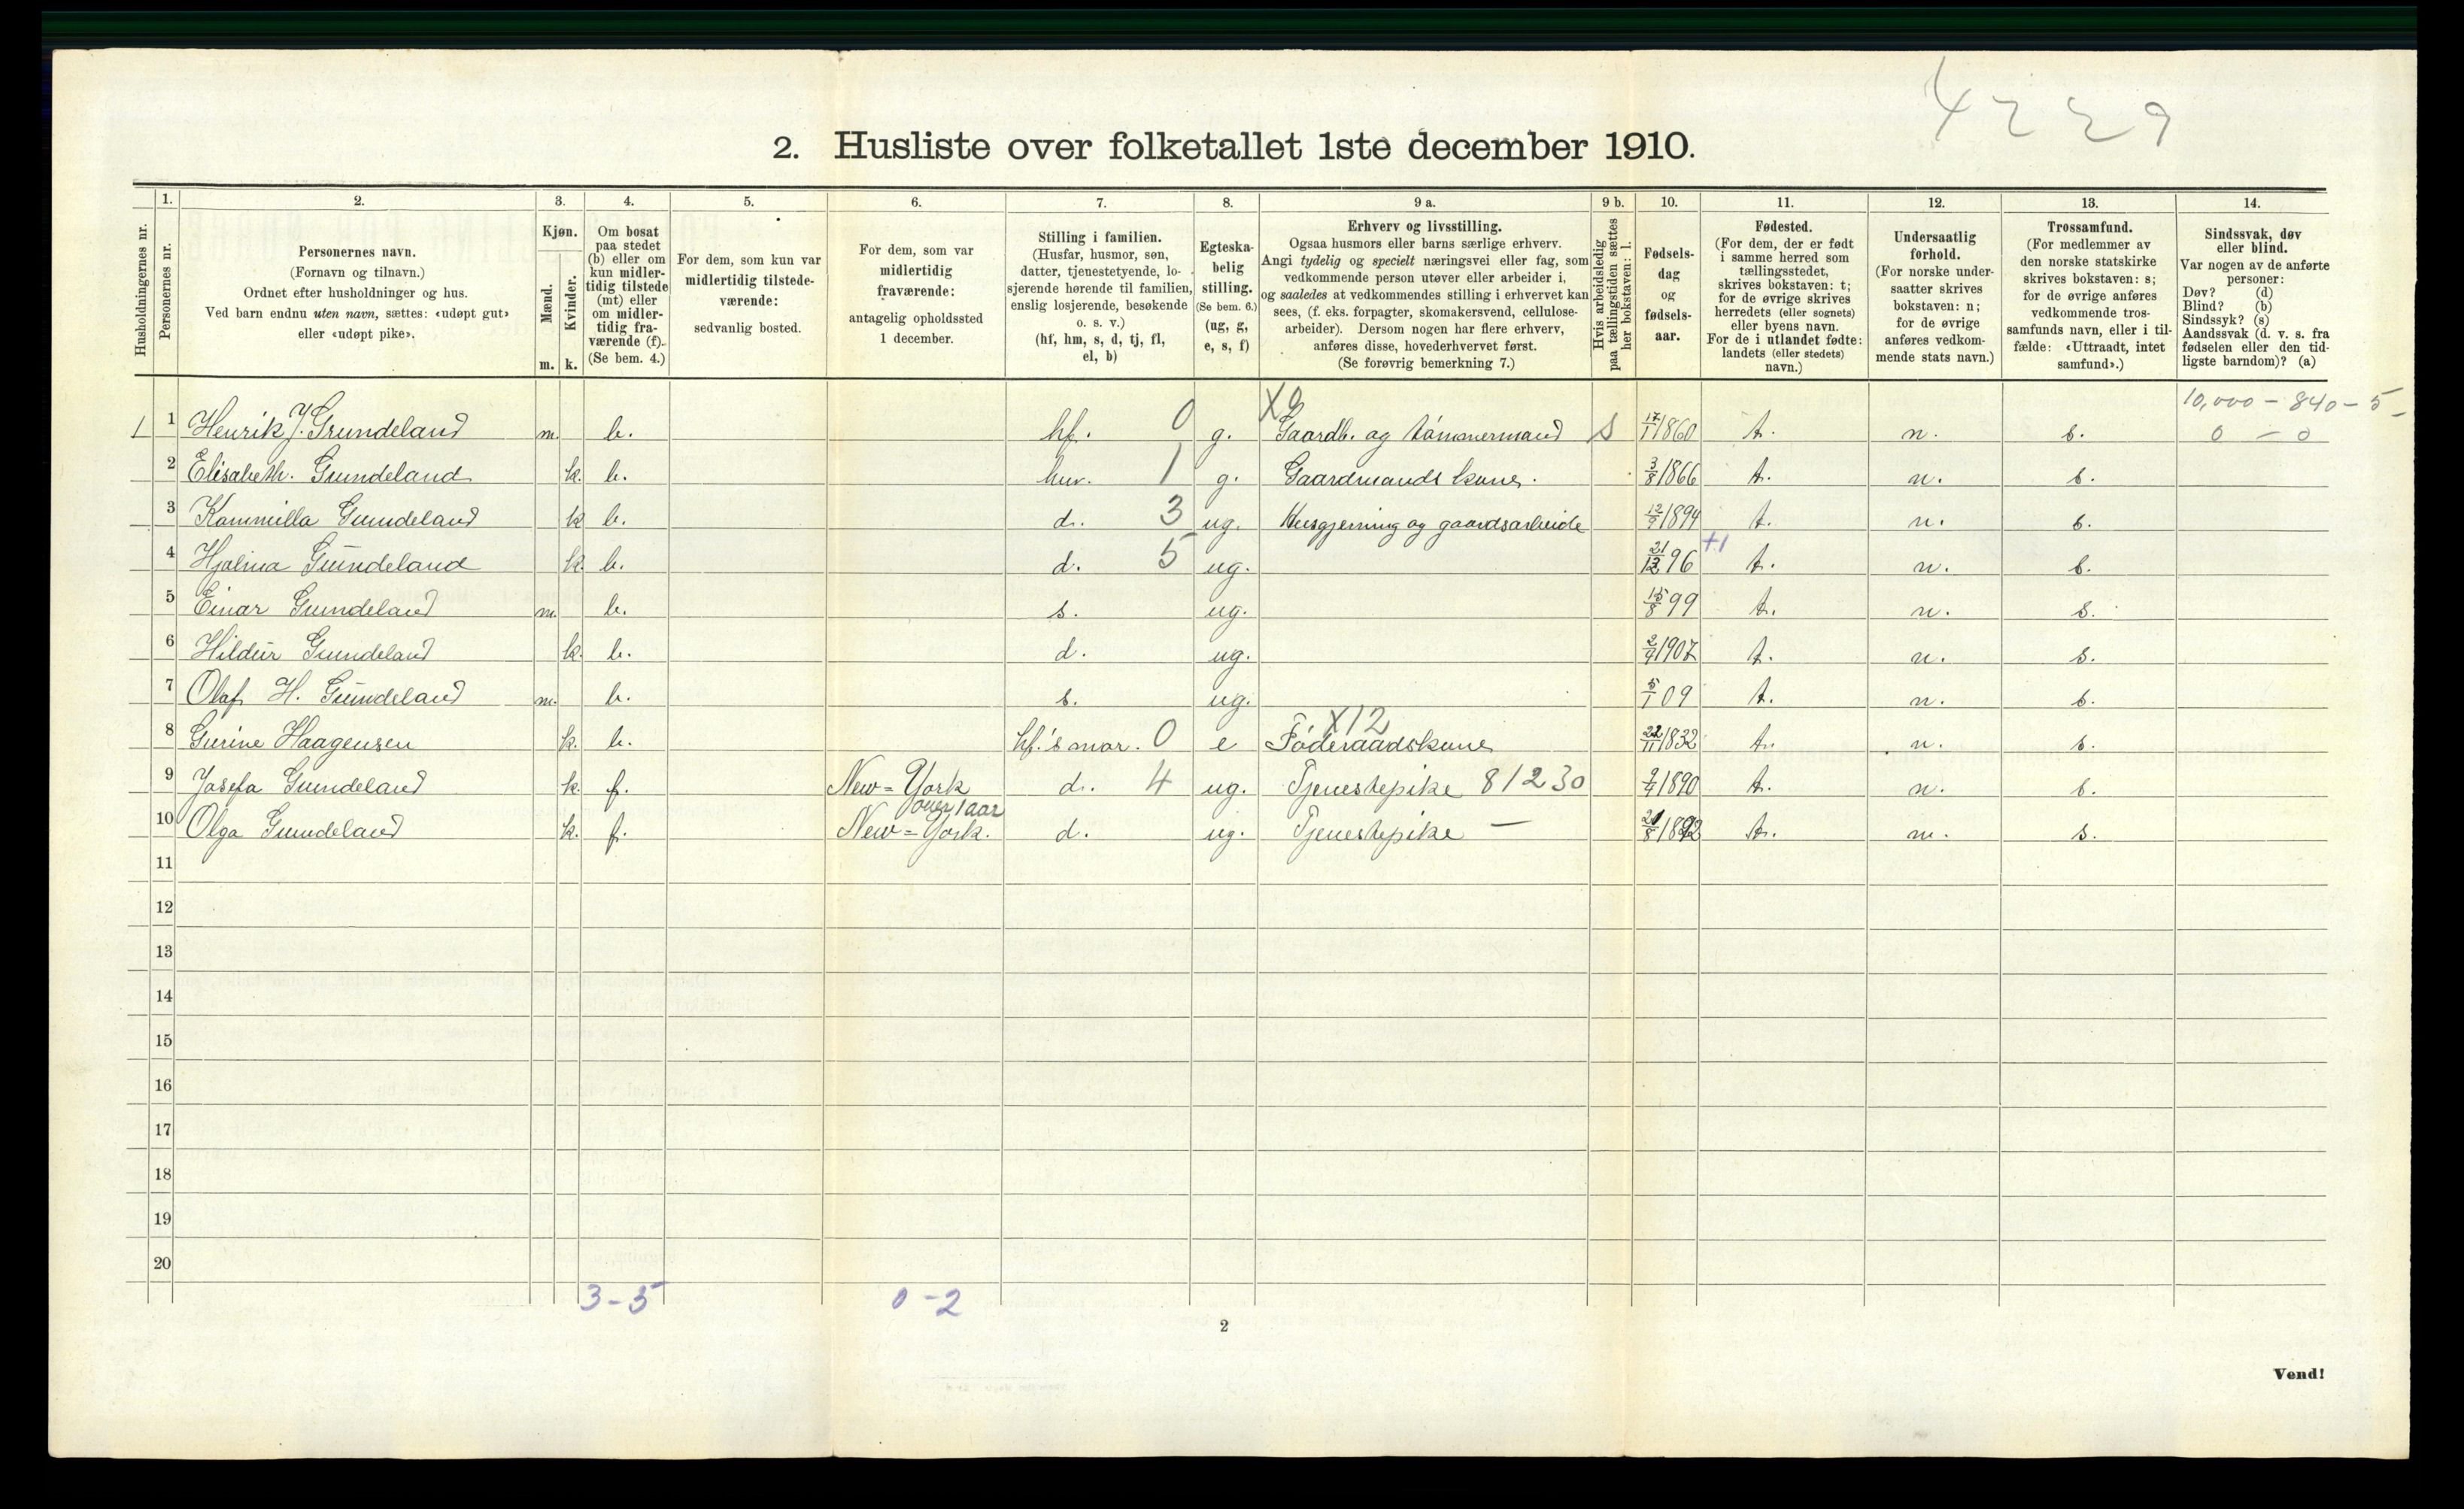 4229
2. Husliste over folketallet 1ste december 1910.
1. 2. 3. 4. 5. 6. 7. 8. 9 a. 9 b. 10. 11. 12. 13. 14.
Husholdningernes nr.
Personernes nr.
Personernes navn.
(Fornavn og tilnavn.)
Ordnet efter husholdninger og hus.
Ved barn endnu uten navn, sættes: «udøpt gut»
eller «udøpt pike».
Kjøn.
Mænd.
Kvinder.
m. k.
Om bosat
paa stedet
(b) eller om
kun midler-
tidig tilstede
(mt) eller
om midler-
tidig fra-
værende (f).
(Se bem. 4.)
For dem, som kun var
midlertidig tilstede-
værende:
sedvanlig bosted.
For dem, som var
midlertidig
fraværende:
antagelig opholdssted
1 december.
Stilling i familien.
(Husfar, husmor, søn,
datter, tjenestetyende, lo-
sjerende hørende til familien,
enslig losjerende, besøkende
o. s. v.)
(hf, hm, s, d, tj, fl,
el, b)
Egteska-
belig
stilling.
(Se bem. 6.)
(ug, g,
e, s, f)
Erhverv og livsstilling.
Ogsaa husmors eller barns særlige erhverv.
Angi tydelig og specielt næringsvei eller fag, som
vedkommende person utøver eller arbeider i,
og saaledes at vedkommendes stilling i erhvervet kan
sees, (f. eks. forpagter, skomakersvend, cellulose-
arbeider). Dersom nogen har flere erhverv,
anføres disse, hovederhvervet først.
(Se forøvrig bemerkning 7.)
Hvis arbeidsledig
paa tællingstiden sættes
her bokstaven: l.
Fødsels-
dag
og
fødsels-
aar.
Fødested.
(For dem, der er født
i samme herred som
tællingsstedet,
skrives bokstaven: t;
for de øvrige skrives
herredets (eller sognets)
eller byens navn.
For de i utlandet fødte:
landets (eller stedets)
navn.)
Undersaatlig
forhold.
(For norske under-
saatter skrives
bokstaven: n;
for de øvrige
anføres vedkom-
mende stats navn.)
Trossamfund.
(For medlemmer av
den norske statskirke
skrives bokstaven: s;
for de øvrige anføres
vedkommende tros-
samfunds navn, eller i til-
fælde: «Uttraadt, intet
samfund».)
Sindssvak, døv
eller blind.
Var nogen av de anførte
personer:
Døv? (d)
Blind? (b)
Sindssyk? (s)
Aandssvak (d. v. s. fra
fødselen eller den tid-
ligste barndom)? (a)
X9 10,000 - 840 - 5 -
1 1 Henrik J. Grundeland m. b. hf. 0 g. Gaardb. og tømmermand S 17/1 1860 t. n. s. 0 - 0
2 Elisabeth. Grundeland k. b. hm. 1 g. Gaardmands kone. 3/8 1866 t. n. s.
3 Kammilla Grundeland k b. d. 3 ug. Husgjerning og gaardsarbeide 12/9 1894 t. n. s.
4 Hjalma Grundeland k. b. d. 5 ug. 21/12 96 +1 t. n. s.
5 Einar Grundeland m. b. s. ug. 15/8 99 t. n. s.
6 Hildur Grundeland k. b. d. ug. 2/9 1907 t. n. s.
7 Olaf H. Grundeland m. b. s. ug. 5/1 09 t. n. s.
X12
8 Gurine Haagensen k. b. hf.'s mor. 0 e Føderaadskone 22/11 1832 t. n. s.
9 Josefa Grundeland k. f. New=York d. 4 ug. Tjenestepike 81230 9/4 1890 t. n. s.
over 1 aar
10 Olga Grundeland k. f. New=York. d. ug. Tjenestepike — 21/8 1892 t. n. s.
11
12
13
14
15
16
17
18
19
20
3-5 0-2
2
Vend!